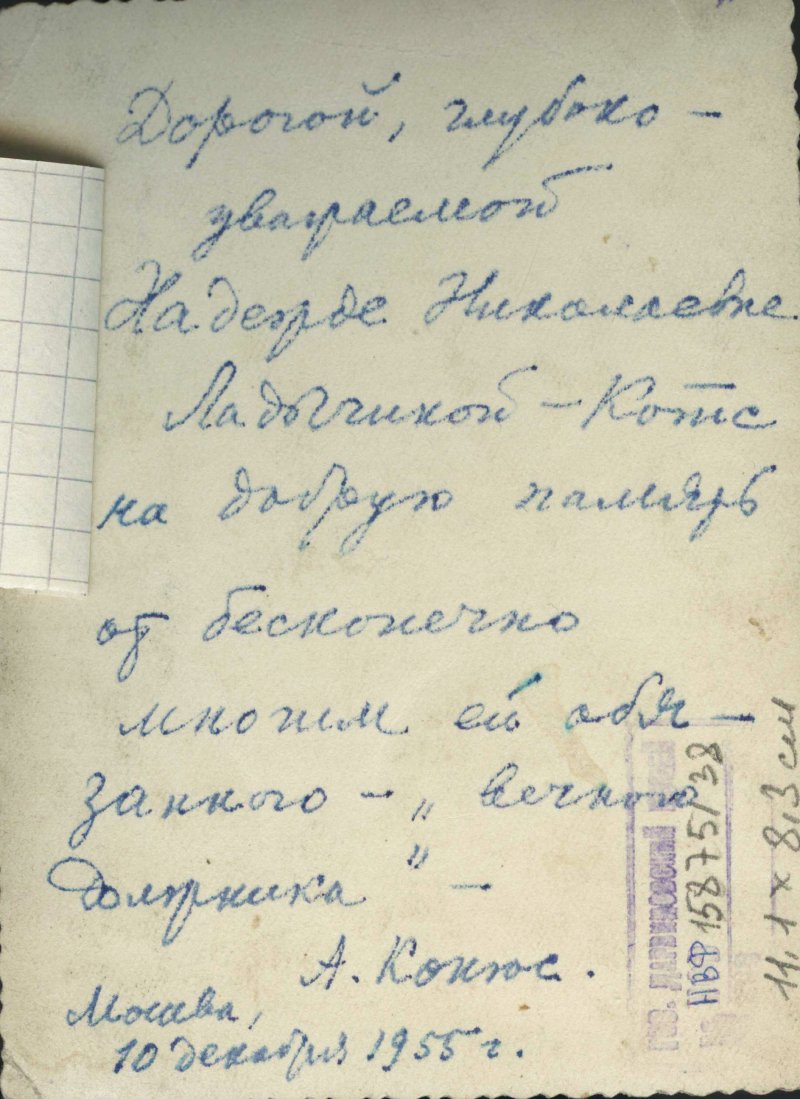 Дорогой, глубоко-
уважаемой
Надежде Николаевне
Ладычикой - Котс
на добрую память
от бесконечно
многим ей обя-
занного - „ вечного
должника " -
А. Конюс.
Москва,
10 декабря 1955 г.
ГОС. ДАРВИНОВСКИЙ
НВФ 15875/38
11,1 x 8,3 см